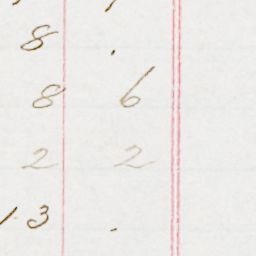 8 .
8 6
2 2
13 .